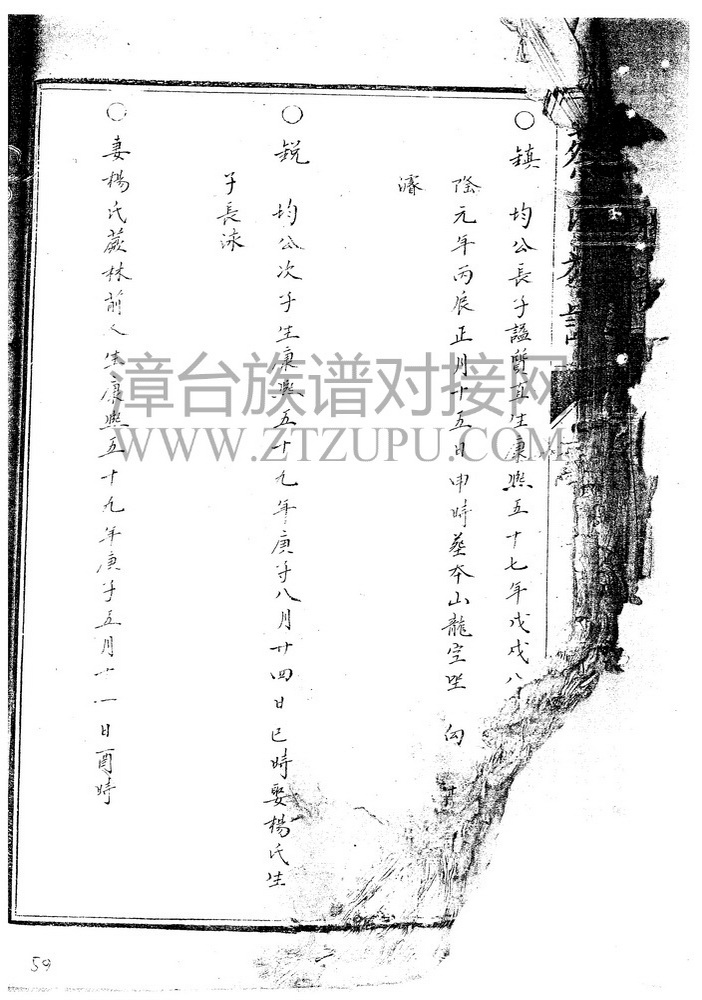 ○ 鎮 均公長子謚質直生康熙五十七年戊戌八
隆元年丙辰正月十五日申時葬本山龍空坐 向
濬
○ 銳 均公次子生康熙五十九年庚子八月廿四日巳時娶楊氏生
子長泳
○ 妻楊氏蕨林前人生康熙五十九年庚子五月十一日酉時
漳台族谱对接网
WWW.ZTZUPU.COM
59